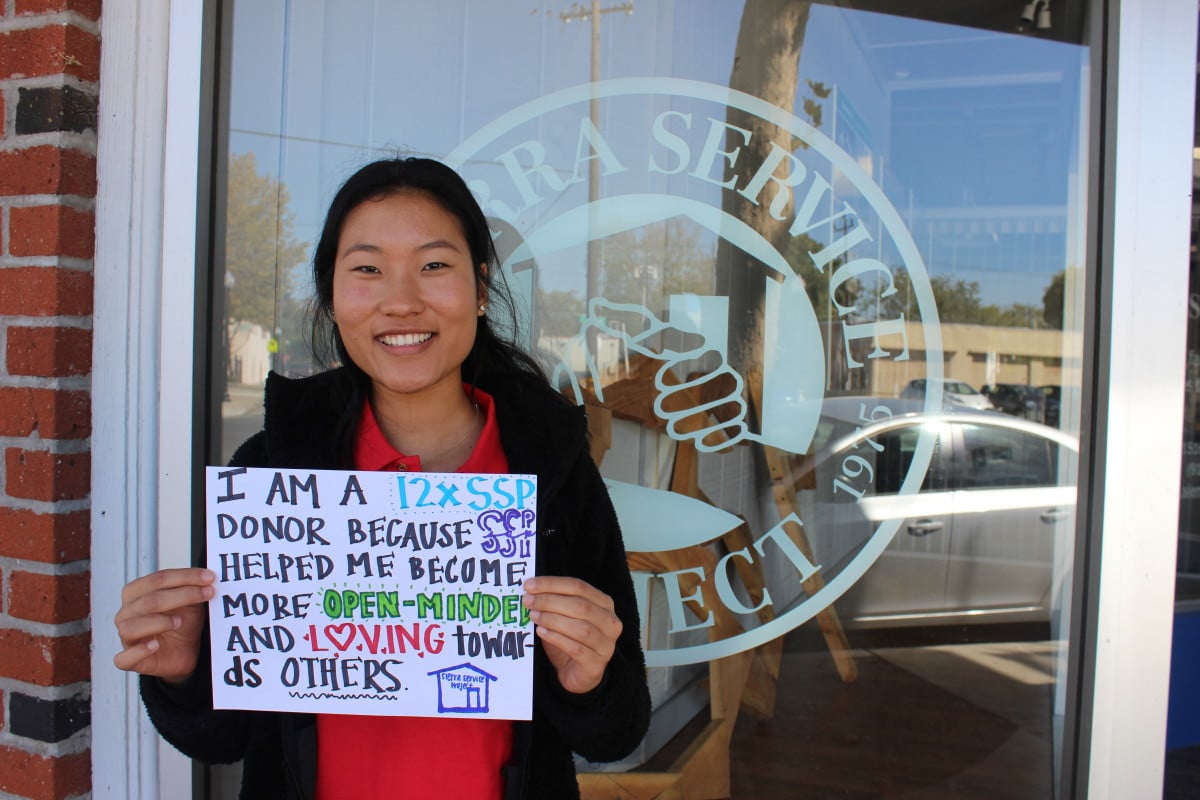 I AM A 12xSSP
DONOR BECAUSE SSP
HELPED ME BECOME
MORE OPEN-MINDED
AND LOVING towar-
ds OTHERS.
sierra service
project
RRA SERVICE
JECT
1975